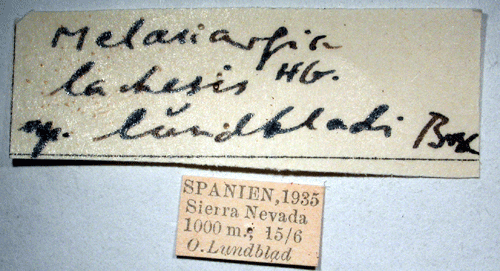 Melanargia
lachesis HG.
sp. lundbladi
SPANIEN, 1935
Sierra Nevada
1000 m.; 15/6
O. Lundblad